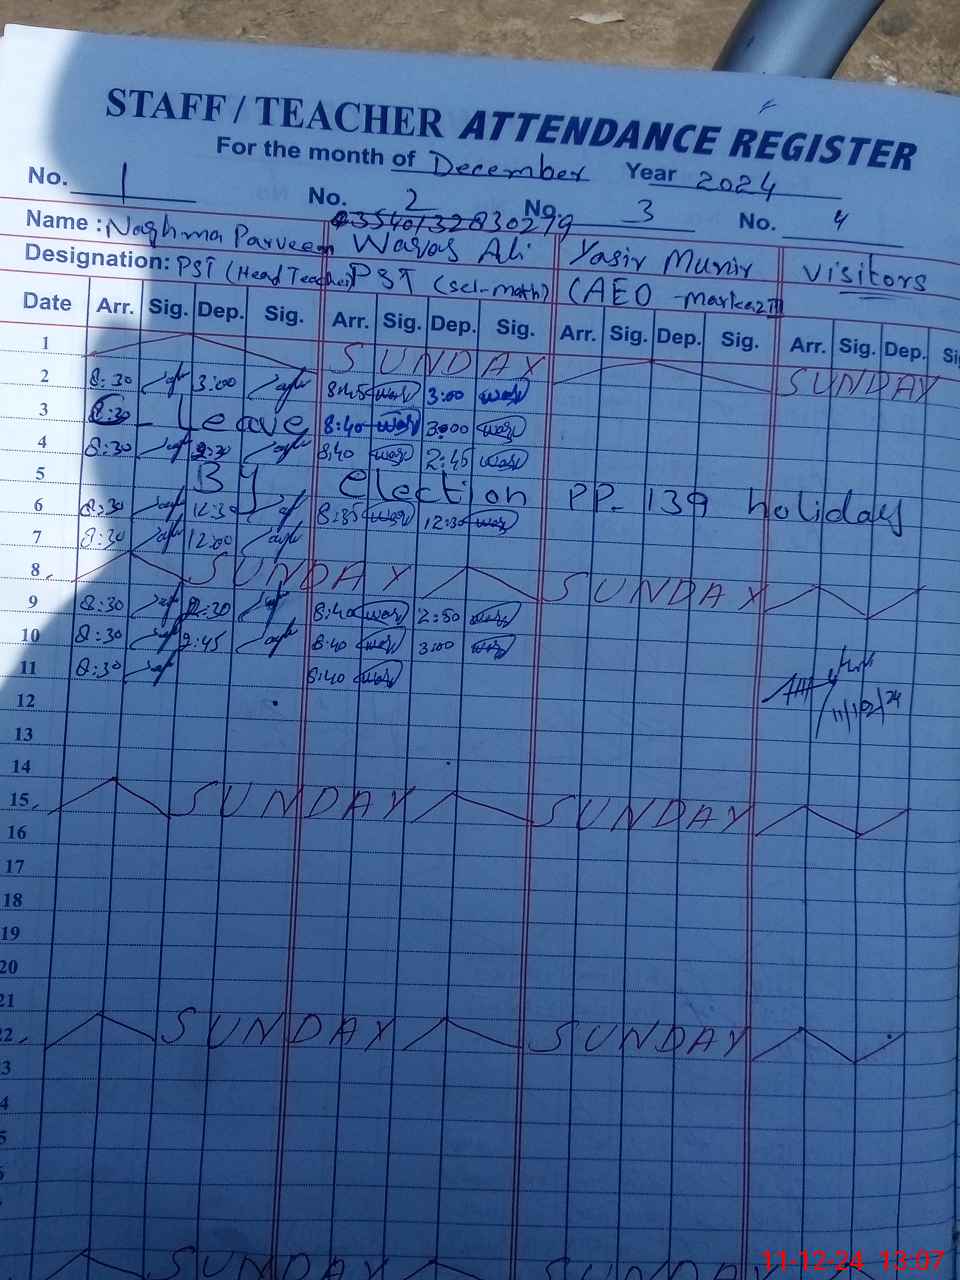 STAFF / TEACHER ATTENDANCE REGISTER
For the month of December Year 2024
No. 1 No. 2 No. 3 No. 4
Name : Naghma Parveen Waqas Ali Yasir Munir visitors
Designation: PST (Head Teacher) PST (sci-math) (AEO -markaz III
Date Arr. Sig. Dep. Sig. Arr. Sig. Dep. Sig. Arr. Sig. Dep. Sig. Arr. Sig. Dep. Si
1 SUNDAY SUNDAY
2 8:30 3:00 8:45 3:00
3 8:30 Leave 8:40 3:00
4 8:30 2:30 8:40 2:45
5 By election PP-139 holiday
6 8:30 12:30 8:35 12:30
7 8:30 12:00
8 SUNDAY SUNDAY
9 8:30 2:30 8:40 2:50
10 8:30 2:45 8:40 3:00
11 8:30 8:40
11/12/24
12
13
14
15 SUNDAY SUNDAY
16
17
18
19
20
21
22 SUNDAY SUNDAY
3
4
5
SUNDAY SUNDAY
11-12-24 13:07